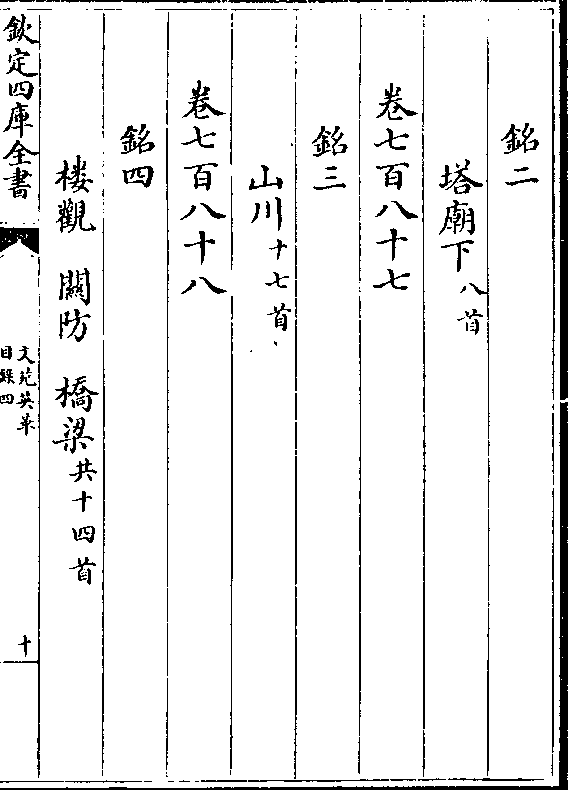 銘二
塔廟下八首
卷七百八十七
銘三
山川十七首
卷七百八十八
銘四
樓觀 關防 橋梁共十四首
欽定四庫全書
文苑英華
目錄四
十